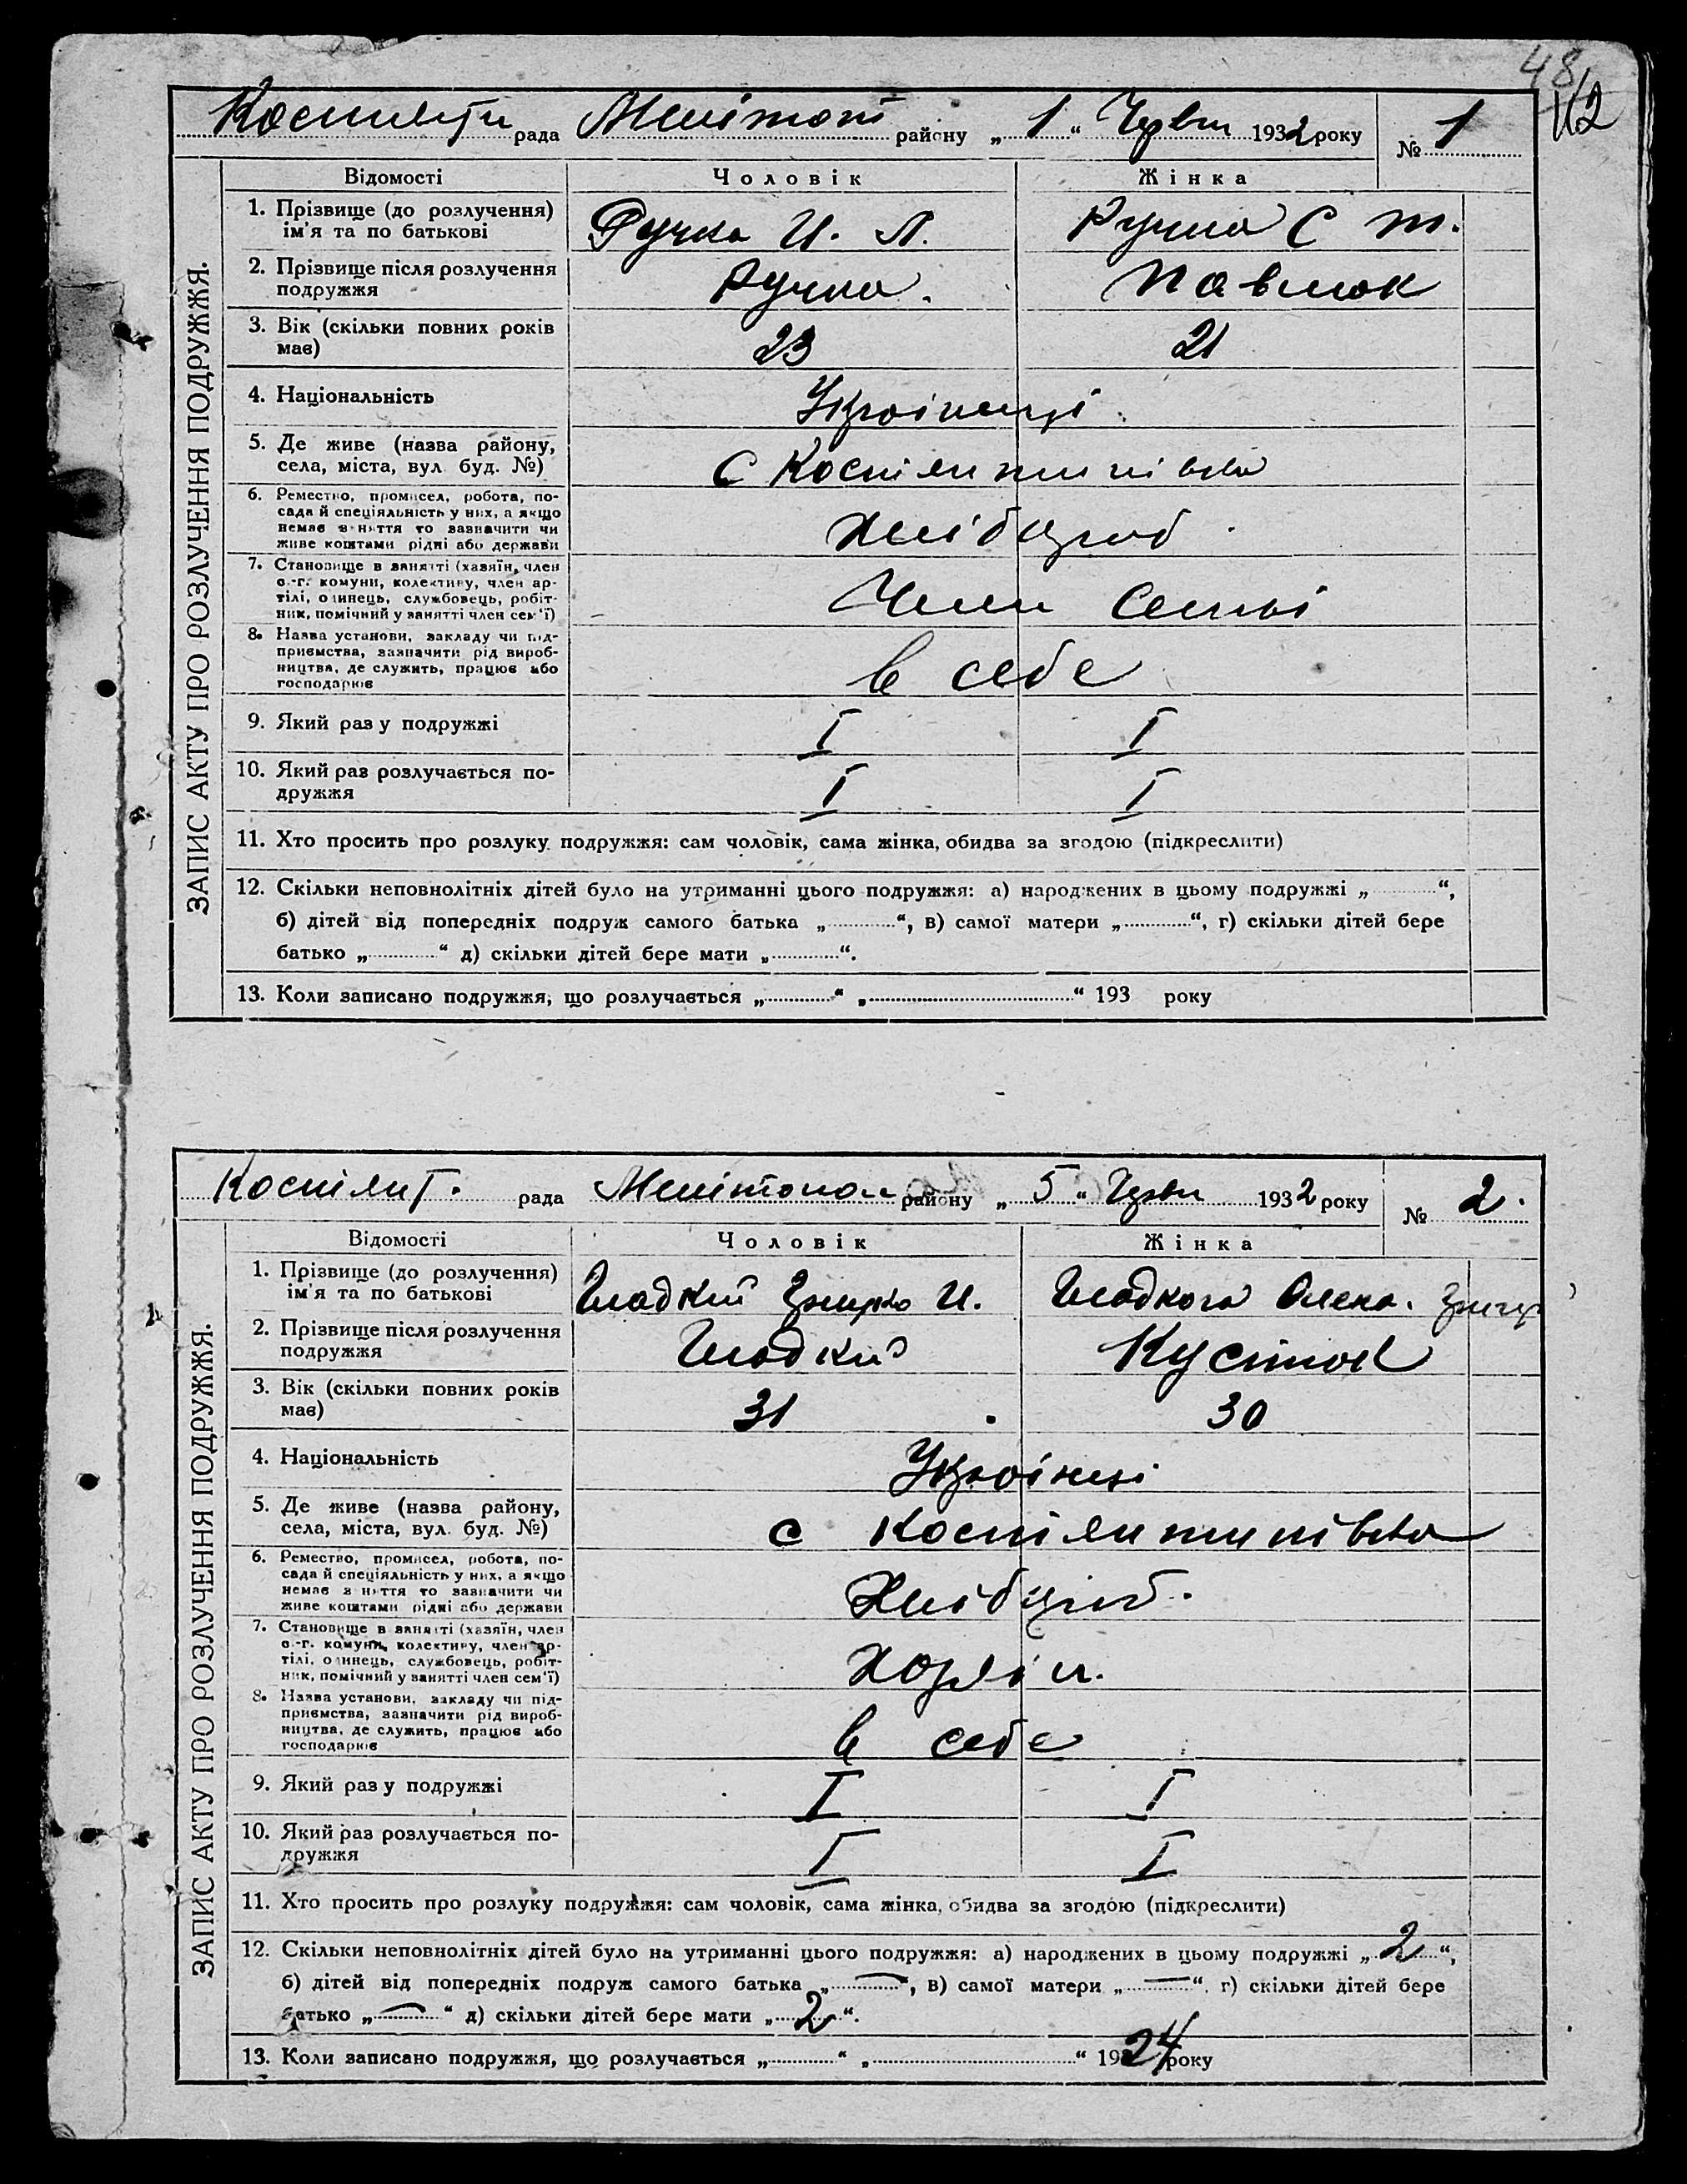 48
112
Костянти рада Мелітоп району „ 1 “ Червн 1932 року № 1
ЗАПИС АКТУ ПРО РОЗЛУЧЕННЯ ПОДРУЖЖЯ.
Відомості Чоловік Жінка
1. Прізвище (до розлучення)
ім'я та по батькові
Ручка И. Л. Ручка С Т.
2. Прізвище після розлучення
подружжя
Ручка. Павлюк
3. Вік (скільки повних років
має)
23 21
4. Національність Українці
5. Де живе (назва району,
села, міста, вул. буд. №)
С Костянтинівка
6. Ремество, промисел, робота, по-
сада й спеціяльність у них, а якщо
немає з-няття то зазначити чи
живе коштами рідні або держави
Хлібороб
7. Становище в занятті (хазяїн, член
с.-г. комуни, колективу, член ар-
тілі, одинець, службовець, робіт-
ник, помічний у занятті член сем'ї)
Член семьї
8. Назва установи, закладу чи під-
приємства, зазначити рід вироб-
ництва, де служить, працює або
господарює
в себе
9. Який раз у подружжі I I
10. Який раз розлучається по-
дружжя
I I
11. Хто просить про розлуку подружжя: сам чоловік, сама жінка, обидва за згодою (підкреслити)
12. Скільки неповнолітніх дітей було на утриманні цього подружжя: а) народжених в цьому подружжі „ “,
б) дітей від попередніх подруж самого батька „ “, в) самої матери „ “, г) скільки дітей бере
батько „ “ д) скільки дітей бере мати „ “.
13. Коли записано подружжя, що розлучається „ “ „ “ 193 року
Костянт. рада Мелітопол району „ 5 “ Червн 1932 року № 2.
ЗАПИС АКТУ ПРО РОЗЛУЧЕННЯ ПОДРУЖЖЯ.
Відомості Чоловік Жінка
1. Прізвище (до розлучення)
ім'я та по батькові
Гладкий И. Гладкова Олена.
2. Прізвище після розлучення
подружжя
Гладкий
3. Вік (скільки повних років
має)
31 30
4. Національність Українці
5. Де живе (назва району,
села, міста, вул. буд. №)
с Костянтинівка
6. Ремество, промисел, робота, по-
сада й спеціяльність у них, а якщо
немає з-няття то зазначити чи
живе коштами рідні або держави
Хлібороб.
7. Становище в занятті (хазяїн, член
с.-г. комуни, колективу, член ар-
тілі, одинець, службовець, робіт-
ник, помічний у занятті член сем'ї)
Хозяїн.
8. Назва установи, закладу чи під-
приємства, зазначити рід вироб-
ництва, де служить, працює або
господарює
в себе
9. Який раз у подружжі I I
10. Який раз розлучається по-
дружжя
I I
11. Хто просить про розлуку подружжя: сам чоловік, сама жінка, обидва за згодою (підкреслити)
12. Скільки неповнолітніх дітей було на утриманні цього подружжя: а) народжених в цьому подружжі „ 2 “,
б) дітей від попередніх подруж самого батька „ — “, в) самої матери „ — “. г) скільки дітей бере
батько „ — “ д) скільки дітей бере мати „ 2 “.
13. Коли записано подружжя, що розлучається „ “ „ “ 1924 року